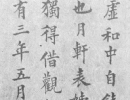 虛和中自紙
也月軒表姊
獨得借觀
有三年五月